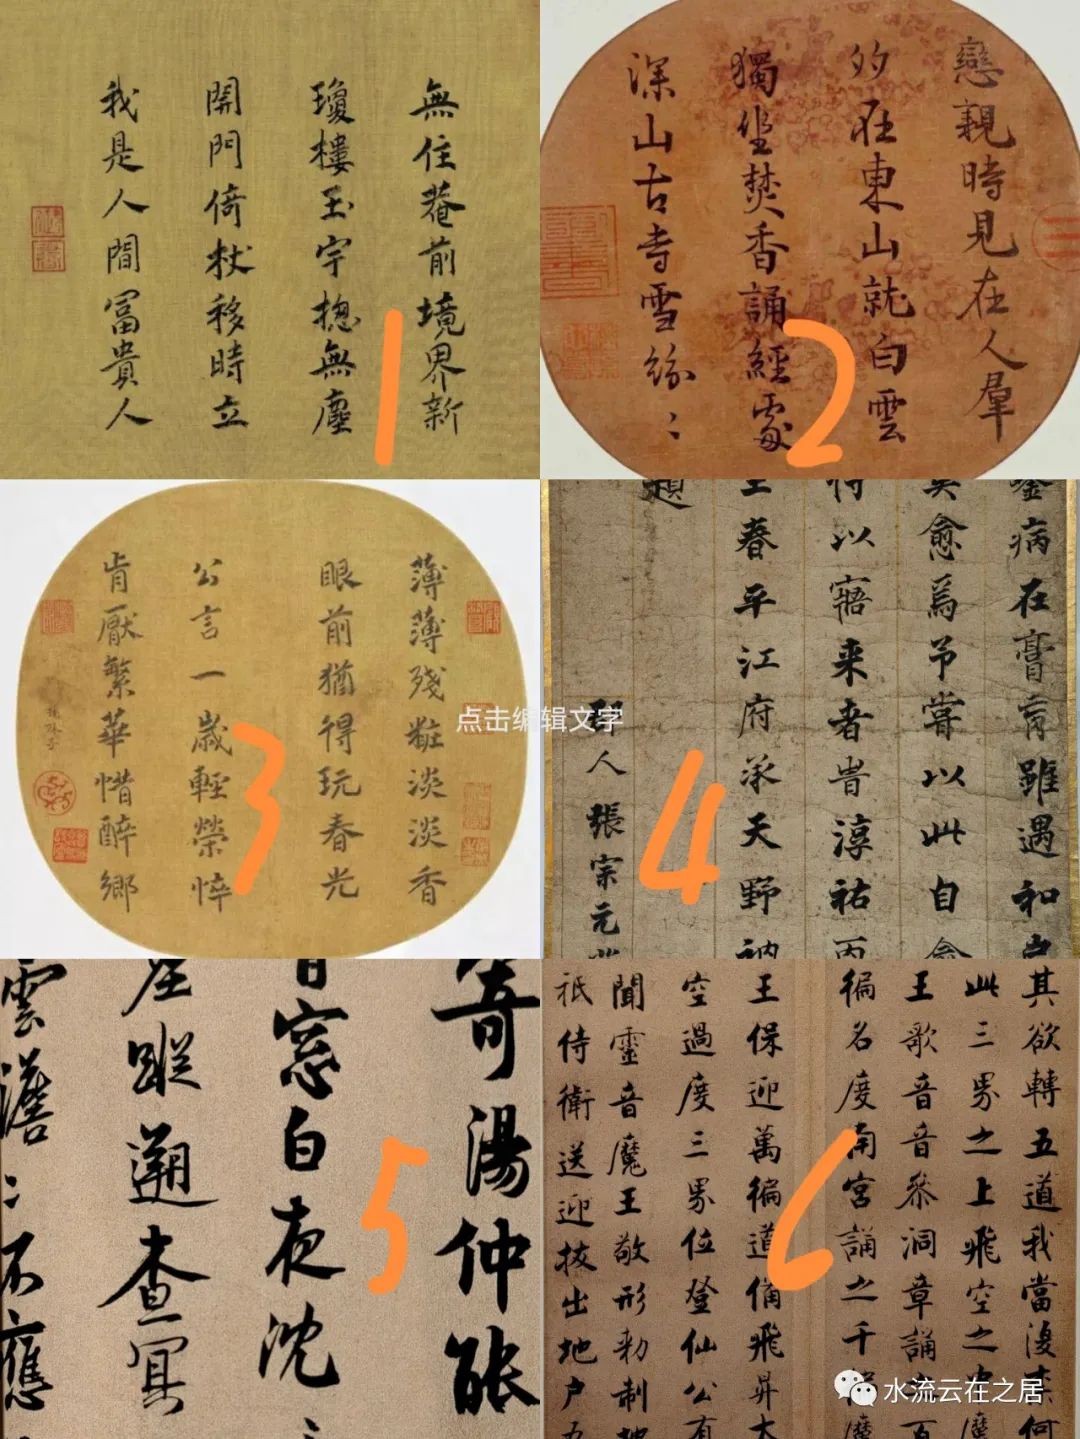 無住菴前境界新
瓊樓玉宇摠無塵
開門倚杖移時立
我是人間富貴人
1
戀親時見在人羣
多在東山就白雲
獨坐焚香誦經處
深山古寺雪紛〻
2
薄薄殘粧淡淡香
眼前猶得玩春光
公言一歲輕榮悴
肯厭繁華惜醉鄉
3
點击编辑文字
病在膏肓雖遇和
愈為予嘗以此自
以寤来者昔淳祐丙
春平江府承天野衲
題
人張宗元
4
奇湯仲能
窓白夜沈〻
蹤遡查冥
雲澹〻不應
5
其欲轉五道我當復
此三界之上飛空之中魔
王歌音音參洞章誦
徧名度南宮誦之千
王保迎萬徧道備飛昇太
空過度三界位登仙公有
聞靈音魔王敬形勑制地
祇侍衛送迎拔出地户五
6
水流云在之居